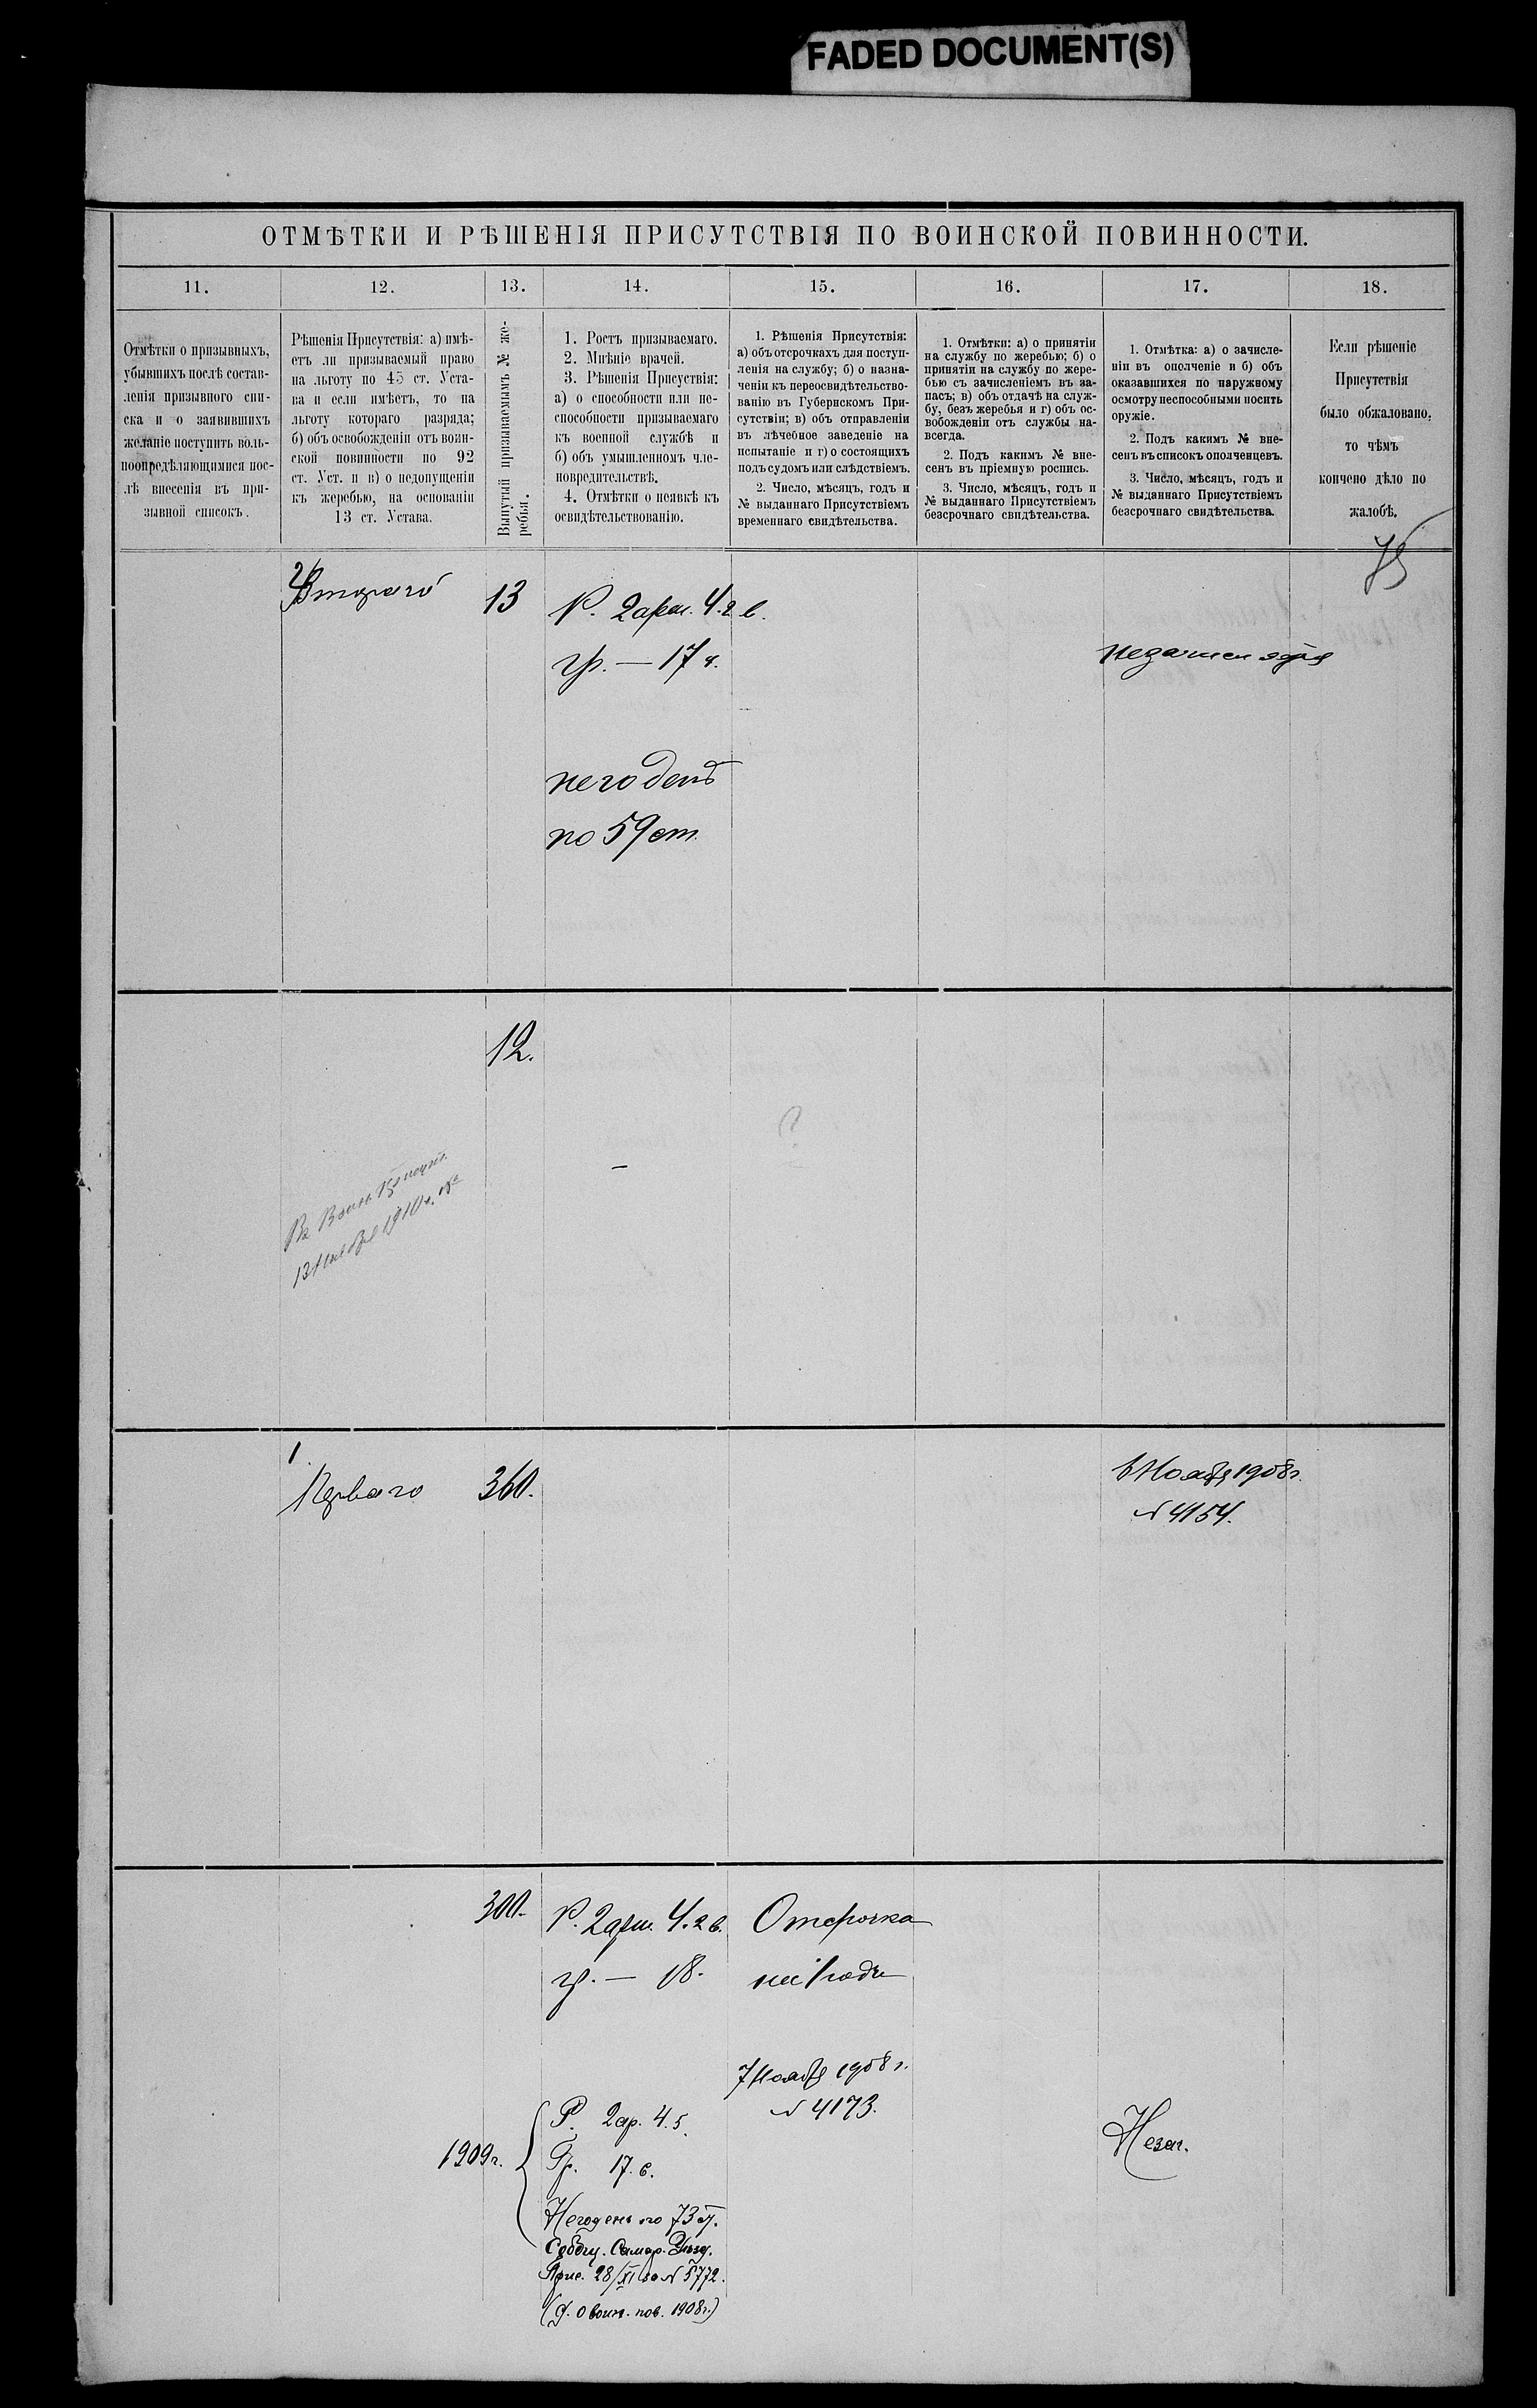 FADED DOCUMENT(S)
ОТМѢТКИ И РѢШЕНІЯ ПРИСУТСТВІЯ ПО ВОИНСКОЙ ПОВИННОСТИ.
11.
12.
13.
14.
15.
16.
17.
18.
Отмѣтки о призывныхъ,
убывшихъ послѣ состав-
ленія призывного спи-
ска и о заявившихъ
желаніе поступить воль-
ноопредѣляющимися пос-
лѣ внесенія въ при-
зывной списокъ.
Рѣшенія Присутствія: а) имѣ-
етъ ли призываемый право
на льготу по 45 ст. Уста-
ва и если имѣетъ, то на
льготу котораго разряда;
б) объ освобожденіи отъ воин-
ской повинности по 92
ст. Уст. и в) о недопущеніи
къ жеребью, на основаніи
13 ст. Устава.
Вынутый призываемымъ № же-
ребья.
1. Ростъ призываемаго.
2. Мнѣніе врачей.
3. Рѣшенія Присуствія:
а) о способности или не-
способности призываемаго
къ военной службѣ и
б) объ умышленномъ чле-
новредительствѣ.
4. Отмѣтки о неявкѣ къ
освидѣтельствованію.
1. Рѣшенія Присутствія:
а) объ отсрочкахъ для поступ-
ленія на службу; б) о назна-
ченіи къ переосвидѣтельство-
ванію въ Губернскомъ При-
сутствіи; в) объ отправленіи
въ лѣчебное заведеніе на
испытаніе и г) о состоящихъ
подъ судомъ или слѣдствіемъ.
2. Число, мѣсяцъ, годъ и
№ выданнаго Присутствіемъ
временнаго свидѣтельства.
1. Отмѣтки: а) о принятіи
на службу по жеребью; б) о
принятіи на службу по жере-
бью съ зачисленіемъ въ за-
пасъ; в) объ отдачѣ на служ-
бу, безъ жеребья и г) объ ос-
вобожденіи отъ службы на-
всегда.
2. Подъ какимъ № вне-
сенъ въ пріемную роспись.
3. Число, мѣсяцъ, годъ и
№ выданнаго Присутствіемъ
безсрочнаго свидѣтельства.
1. Отмѣтка: а) о зачисле-
ніи въ ополченіе и б) объ
оказавшихся по наружному
осмотру неспособными носить
оружіе.
2. Подъ какимъ № вне-
сенъ въ списокъ ополченцевъ.
3. Число, мѣсяцъ, годъ и
№ выданнаго Присутствіемъ
безсрочнаго свидѣтельства.
Если рѣшеніе
Присутствія
было обжаловано,
то чѣмъ
кончено дѣло по
жалобѣ.
2
Второго
13
Р. 2 арш. 4.2 в.
гр. — 17 ч.
негоденъ
по 59 ст.
12.
1
Перваго
360.
6 Ноября 1908 г.
№ 4154.
300.
Р. 2 арш. 4.2 в.
гр. — 18.
Отсрочка
на 1 годъ
7 Ноября 1908 г.
№ 4173.
1909 г.
Р. 2 ар. 4.5.
Гр. 17.6.
Негоденъ по 73 ст.
Сообщ. Самар. Уѣзд.
Прис. 28/XI за № 5772.
(д. о воин. пов. 1908 г.)
Незач.